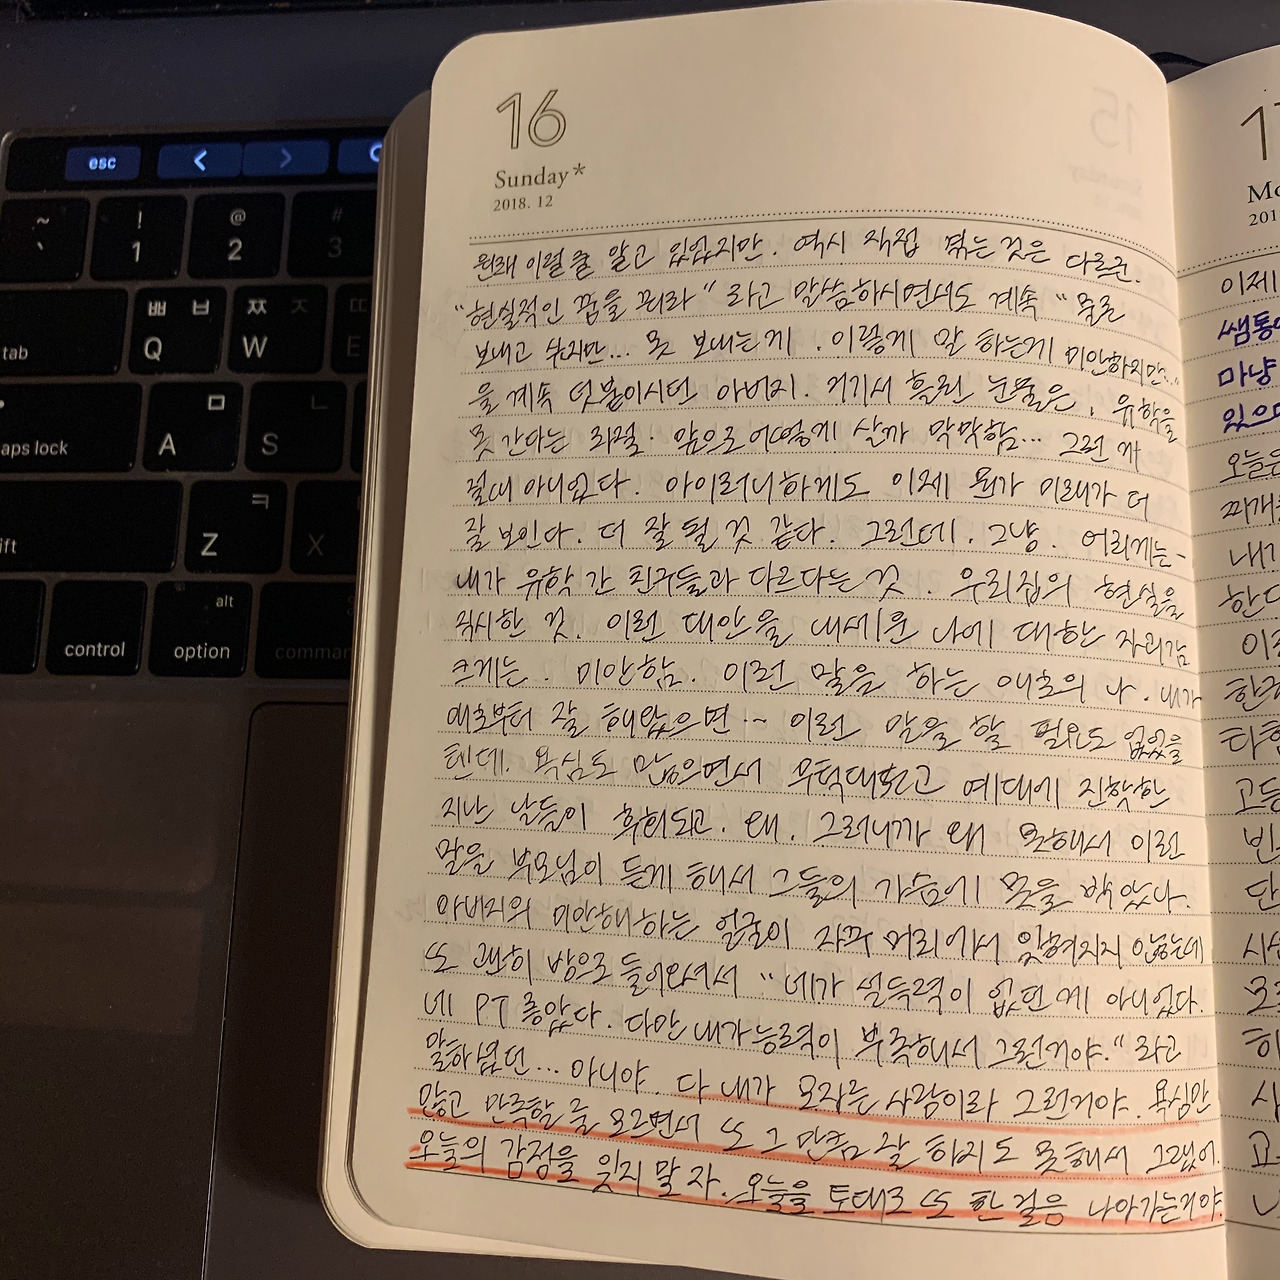 esc
~
`
!
1
@
2
#
3
tab
ㅃ ㅂ
Q
ㅉ ㅈ
W
ㄸ
E
caps lock
ㅁ
A
ㄴ
S
ift
ㅋ
Z
X
control
alt
option
comman
16
Sunday*
2018. 12
원래 이럴 줄 알고 있었지만. 역시 직접 겪는 것은 다르군.
"현실적인 꿈을 꿔라" 라고 말씀하시면서도 계속 "물론
보내고 싶지만... 못 보내는게. 이렇게 말 하는게 미안하지만.."
을 계속 덧붙이시던 아버지. 거기서 흘린 눈물은, 유학을
못 간다는 좌절. 앞으로 어떻게 살까 막막함... 그런 게
절대 아니었다. 아이러니하게도 이제 뭔가 미래가 더
잘 보인다. 더 잘 될 것 같다. 그런데. 그냥. 어리게는-
내가 유학 간 친구들과 다르다는 것. 우리집의 현실을
직시한 것. 이런 대안을 내세운 나에 대한 자괴감
크게는. 미안함. 이런 말을 하는 애초의 나. 내가
애초부터 잘 해왔으면... 이런 말을 할 필요도 없었을
텐데. 욕심도 많으면서 무턱대고 예대에 진학한
지난 날들이 후회되고. 왜. 그러니까 왜 못해서 이런
말을 부모님이 듣게 해서 그들의 가슴에 못을 박았나.
아버지의 미안해하는 얼굴이 자꾸 머리에서 잊혀지지 않는데
또 괜히 방으로 들어와서 "네가 설득력이 없던 게 아니었다.
네 PT 좋았다. 다만 내가 능력이 부족해서 그런거야." 라고
말하셨던... 아니야. 다 내가 모자른 사람이라 그런거야. 욕심만
많고 만족할 줄 모르면서 또 그 만큼 잘 하지도 못해서 그랬어.
오늘의 감정을 잊지 말자. 오늘을 토대로 또 한 걸음 나아가는거야.
15
Saturday
1
Mo
201
이제
쌤통
마냥
있으
오늘은
찌개
내가
한다
이
한
타
고등
빈
단
시